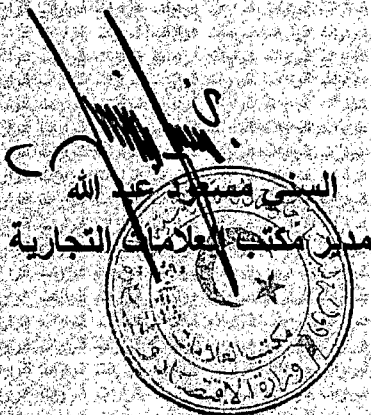 السني مسعود عبد الله
مدير مكتب العلامات التجارية
مكتب العلامات
وزارة الاقتصاد